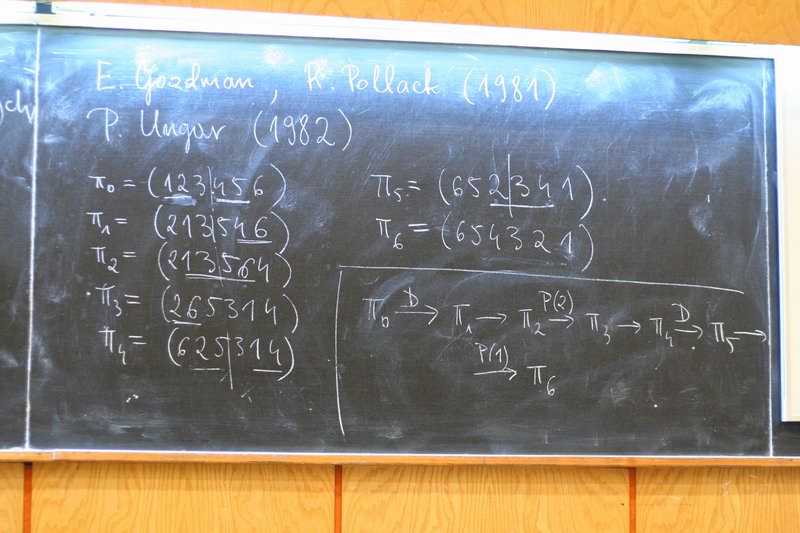 E. Gozdman, R. Pollack (1981)
P. Ungar (1982)
π₀ = (123|456)
π₁ = (213|546)
π₂ = (213|564)
π₃ = (265314)
π₄ = (625|314)
π₅ = (652|341).
π₆ = (654321)
π₀ →D π₁ → π₂ →P(2) π₃ → π₄ →D π₅ →
→P(1) π₆